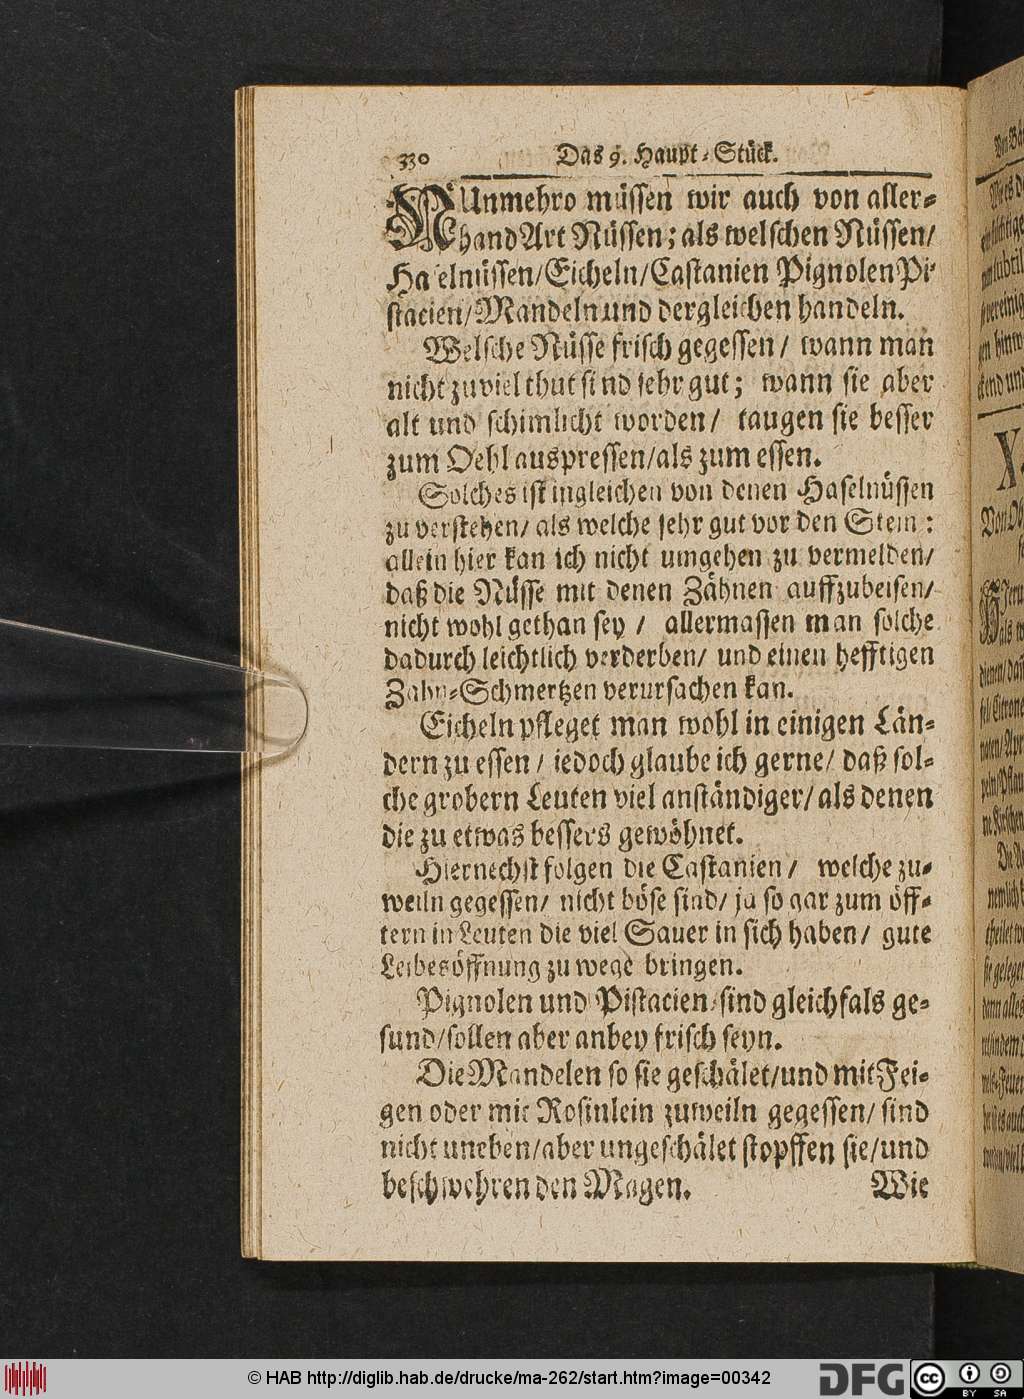 330 Das 9. Haupt-Stück.
NUnmehro müssen wir auch von aller-
hand Art Nüssen; als welschen Nüssen/
Haselnüssen/Eicheln/Castanien Pignolen Pi-
stacien/Mandeln und dergleichen handeln.
Welsche Nüsse frisch gegessen/ wann man
nicht zuviel thut sind sehr gut; wann sie aber
alt und schimlicht worden/ taugen sie besser
zum Oehl auspressen/als zum essen.
Solches ist ingleichen von denen Haselnüssen
zu verstehen/ als welche sehr gut vor den Stein:
allein hier kan ich nicht umgehen zu vermelden/
daß die Nüsse mit denen Zähnen auffzubeisen/
nicht wohl gethan sey / allermassen man solche
dadurch leichtlich verderben/ und einen hefftigen
Zahn-Schmertzen verursachen kan.
Eicheln pfleget man wohl in einigen Län-
dern zu essen / iedoch glaube ich gerne/ daß sol-
che grobern Leuten viel anständiger/ als denen
die zu etwas bessers gewöhnet.
Hiernechst folgen die Castanien/ welche zu-
weiln gegessen/ nicht böse sind/ ja so gar zum öff-
tern in Leuten die viel Sauer in sich haben/ gute
Leibesöffnung zu wege bringen.
Pignolen und Pistacien/sind gleichfals ge-
sund/sollen aber anbey frisch seyn.
Die Mandelen so sie geschälet/und mit Fei-
gen oder mit Rosinlein zuweiln gegessen/ sind
nicht uneben/aber ungeschälet stopffen sie/und
beschwehren den Magen. Wie
© HAB http://diglib.hab.de/drucke/ma-262/start.htm?image=00342
DFG
cc BY SA